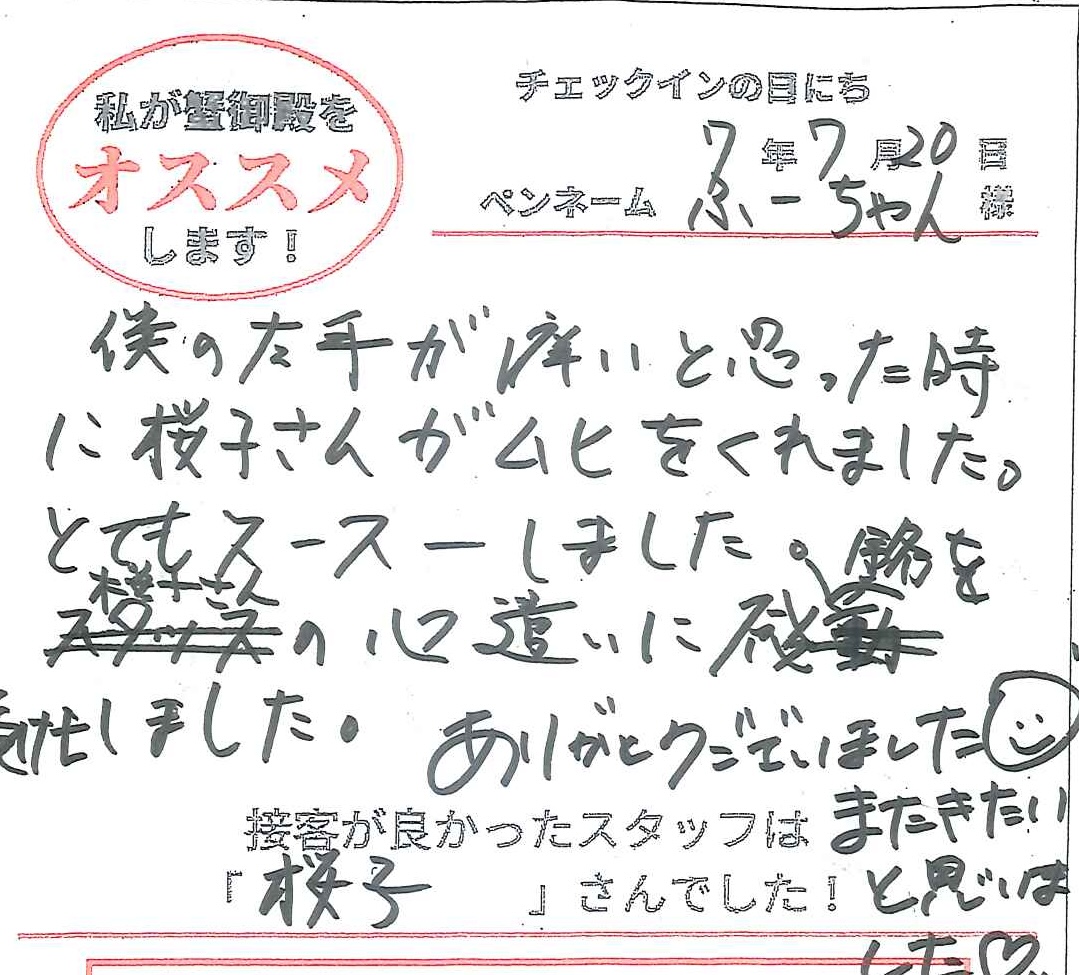 私が蟹御殿を
オススメ
します！
チェックインの日にち
7年7月20日
ペンネーム ふーちゃん 様
僕の左手が痒いと思った時
に桜子さんがムヒをくれました。
とてもスースーしました。
桜子さん 銘を
スタッフの心遣いに感動
しました。ありがとうございました
接客が良かったスタッフは
「桜子」さんでした！
またきたい
と思いま
した♡